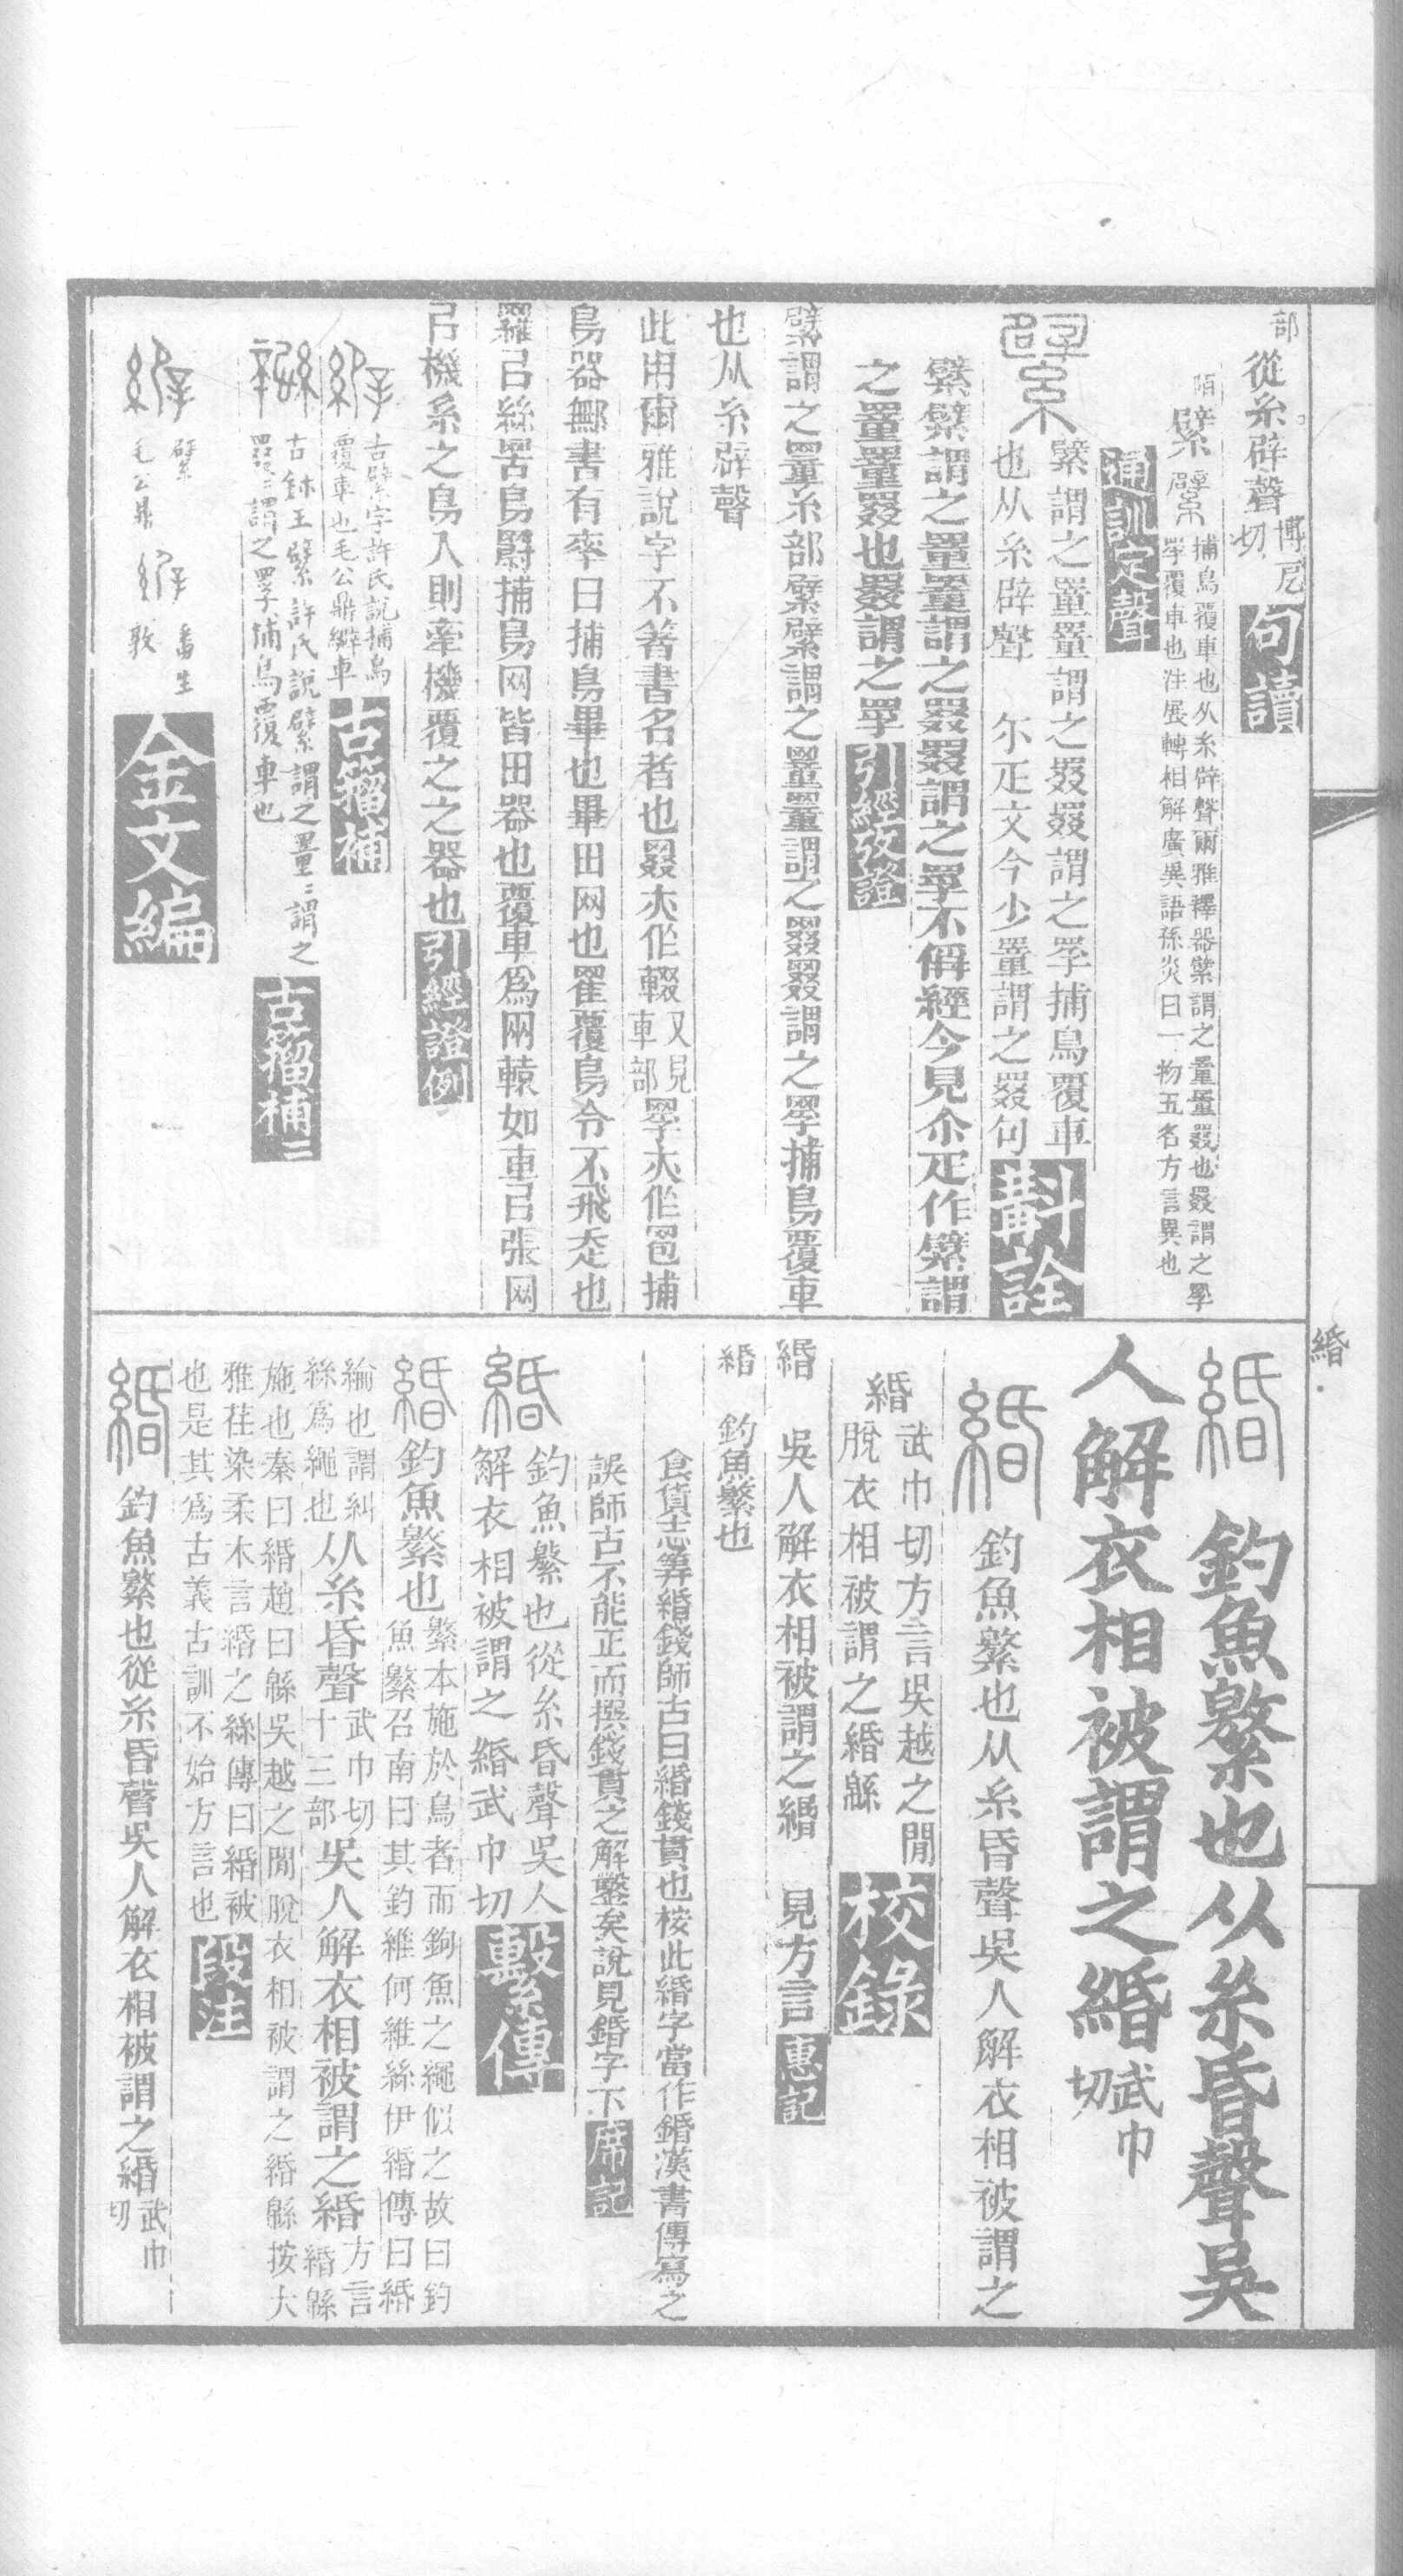 部
從糸辟聲博厄切 句讀
捕鳥覆車也从糸辟聲爾雅釋器繴謂之罿罿罬也罬謂之罦
罦覆車也注展轉相解廣異語孫炎曰一物五名方言異也
通訓定聲
繴謂之罿罿謂之罬罬謂之罦捕鳥覆車
也从糸辟聲 尔疋文今少罿謂之罬句 斠詮
繴繴謂之罿罿謂之罬罬謂之罦不偁經今見尒疋作繴謂
之罿罿罬也罬謂之罦 引經攷證
繴謂之罿糸部繴繴謂之罿罿謂之罬罬謂之罦捕鳥覆車
也从糸辟聲
此用爾雅說字不箸書名者也罬亦作輟又見車部罦亦作雹捕
鳥器無書有率曰捕鳥畢也畢田网也罹覆鳥令不飛走也
羅㠯絲罟鳥罻捕鳥网皆田器也覆車爲兩轅如車㠯張网
㠯機系之鳥入則牽機覆之之器也 引經證例
古繴字許氏說捕鳥
覆車也毛公鼎車 古籀補
古鉥王繴許氏說繴謂之罿罿謂之
罬罬謂之罦捕鳥覆車也 古籀補二
繴 毛公鼎 番生敦 金文編
緍
緍 釣魚繁也从糸昏聲吳
人解衣相被謂之緍武巾切
緍 釣魚繁也从糸昏聲吳人解衣相被謂之
緍 武巾切方言吳越之閒
脫衣相被謂之緍緜 校錄
緍 吳人解衣相被謂之緍 見方言 惠記
緍 釣魚繁也
食貨志筭緍錢師古曰緍錢貫也桉此緍字當作錉漢書傳寫之
誤師古不能正而撰錢貫之解鑿矣說見錉字下 席記
緍 釣魚繁也從糸昏聲吳人
解衣相被謂之緍武巾切 繫傳
緍 釣魚繁也繁本施於鳥者而鉤魚之繩似之故曰釣
魚繁召南曰其釣維何維絲伊緍傳曰緍
綸也謂糾絲爲繩也从糸昏聲武巾切十三部吳人解衣相被謂之緍方言緍緜
施也秦曰緍趙曰緜吳越之閒脫衣相被謂之緍緜按大
雅荏染柔木言緍之絲傳曰緍被
也是其爲古義古訓不始方言也 段注
緍 釣魚繁也從糸昏聲吳人解衣相被謂之緍武巾切